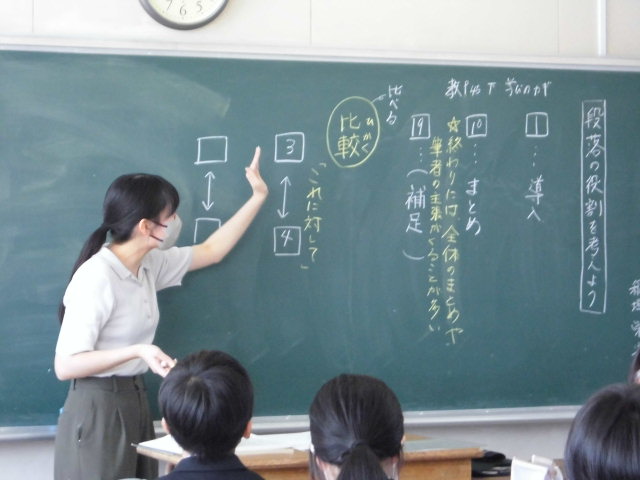 段落の役割を考えよう
1…導入
10…まとめ
☆終わりには、全体のまとめや
筆者の主張がくることが多い
9…(補足)
比べる
ひかく
比較
3
↕
4
「これに対して」